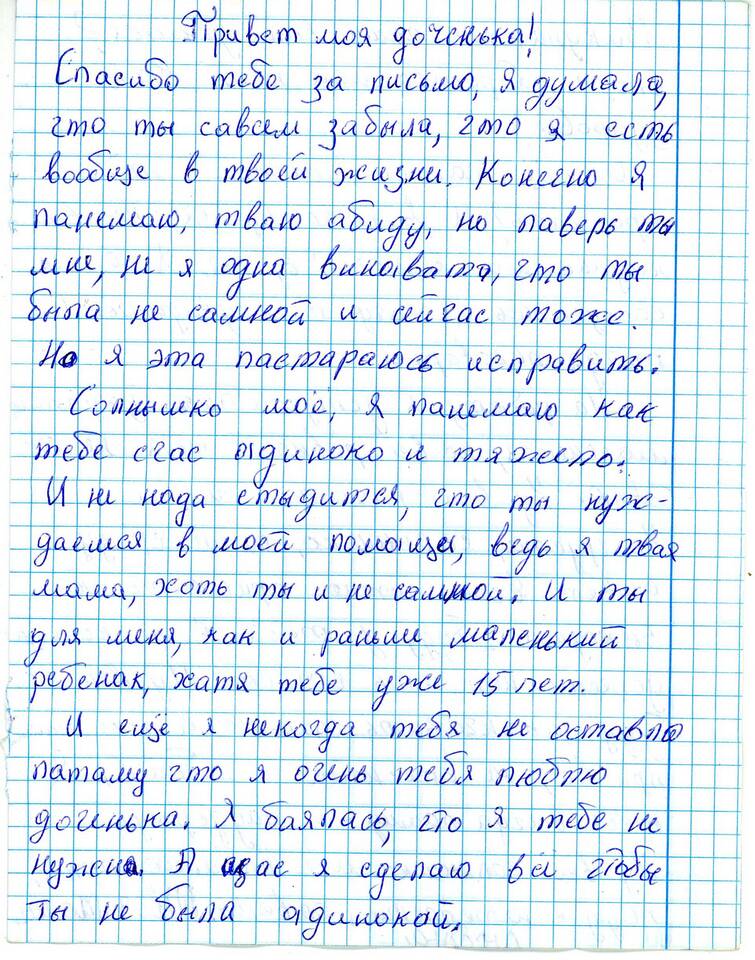 Привет моя доченька!
Спасибо тебе за письмо, я думала,
что ты савсем забыла, что я есть
вообще в твоей жизни. Конечно я
панемаю, тваю абиду, но паверь ты
мне, не я одна виновата, что ты
была не самной и сейчас тоже.
Но я эта пастараюсь исправить.
Солнышко моё, я панемаю как
тебе счас одиноко и тяжело.
И не нада стыдится, что ты нуж-
даешся в моей помощи, ведь я твая
мама, хоть ты и не самной. И ты
для меня, как и раньше маленький
ребенак, хатя тебе уже 15 лет.
И ещё я некогда тебя не оставлю
патаму что я очень тебя люблю
доченька. Я баялась, что я тебе не
нужна. А щас я сделаю всё чтобы
ты не была адинокай.